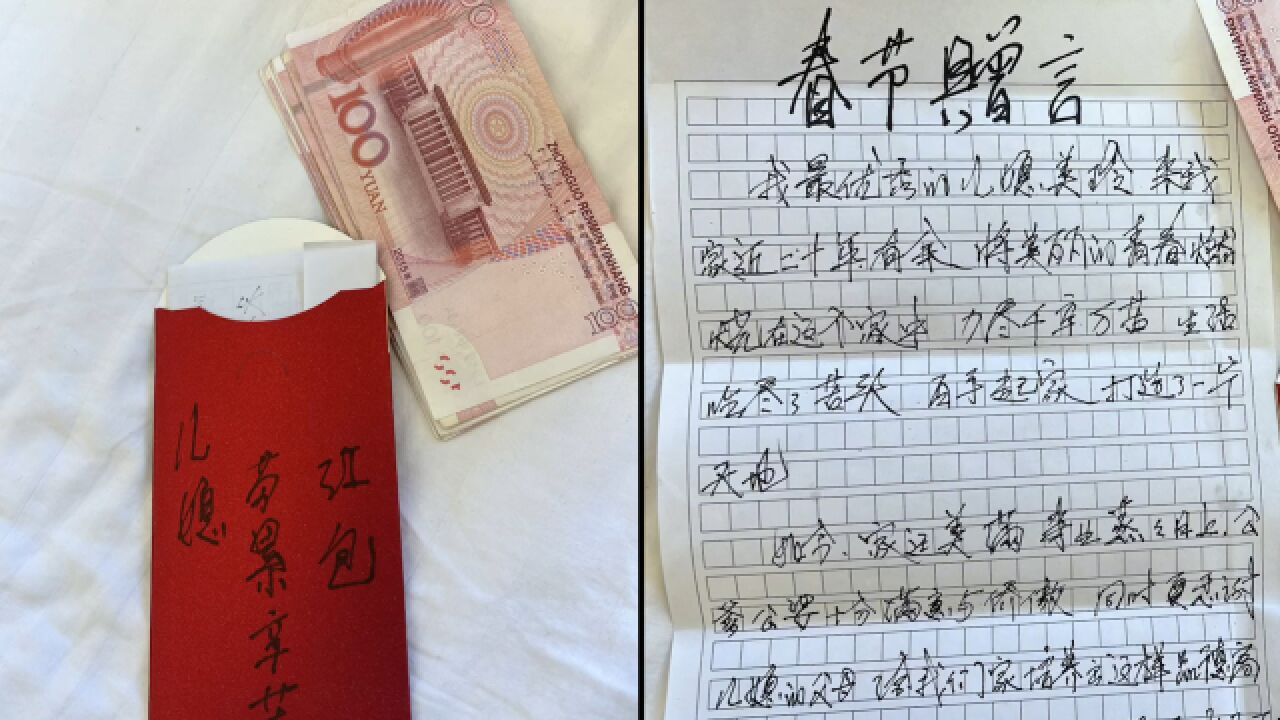 100
YUAN
ZHONGGUO RENMIN YINHANG
100
儿媳
劳累辛苦
红包
春节贈言
我最优秀的儿媳美玲来我
家近二十年有余 将美丽的青春燃
烧在这个家中 力尽千辛万苦 生活
吃尽了苦头 白手起家 打造了一片
天地
如今、家运美满 事业蒸蒸日上,公
爹公婆十分满意与骄傲 同时更感谢
儿媳的父母 给我们家培养出这样品德高